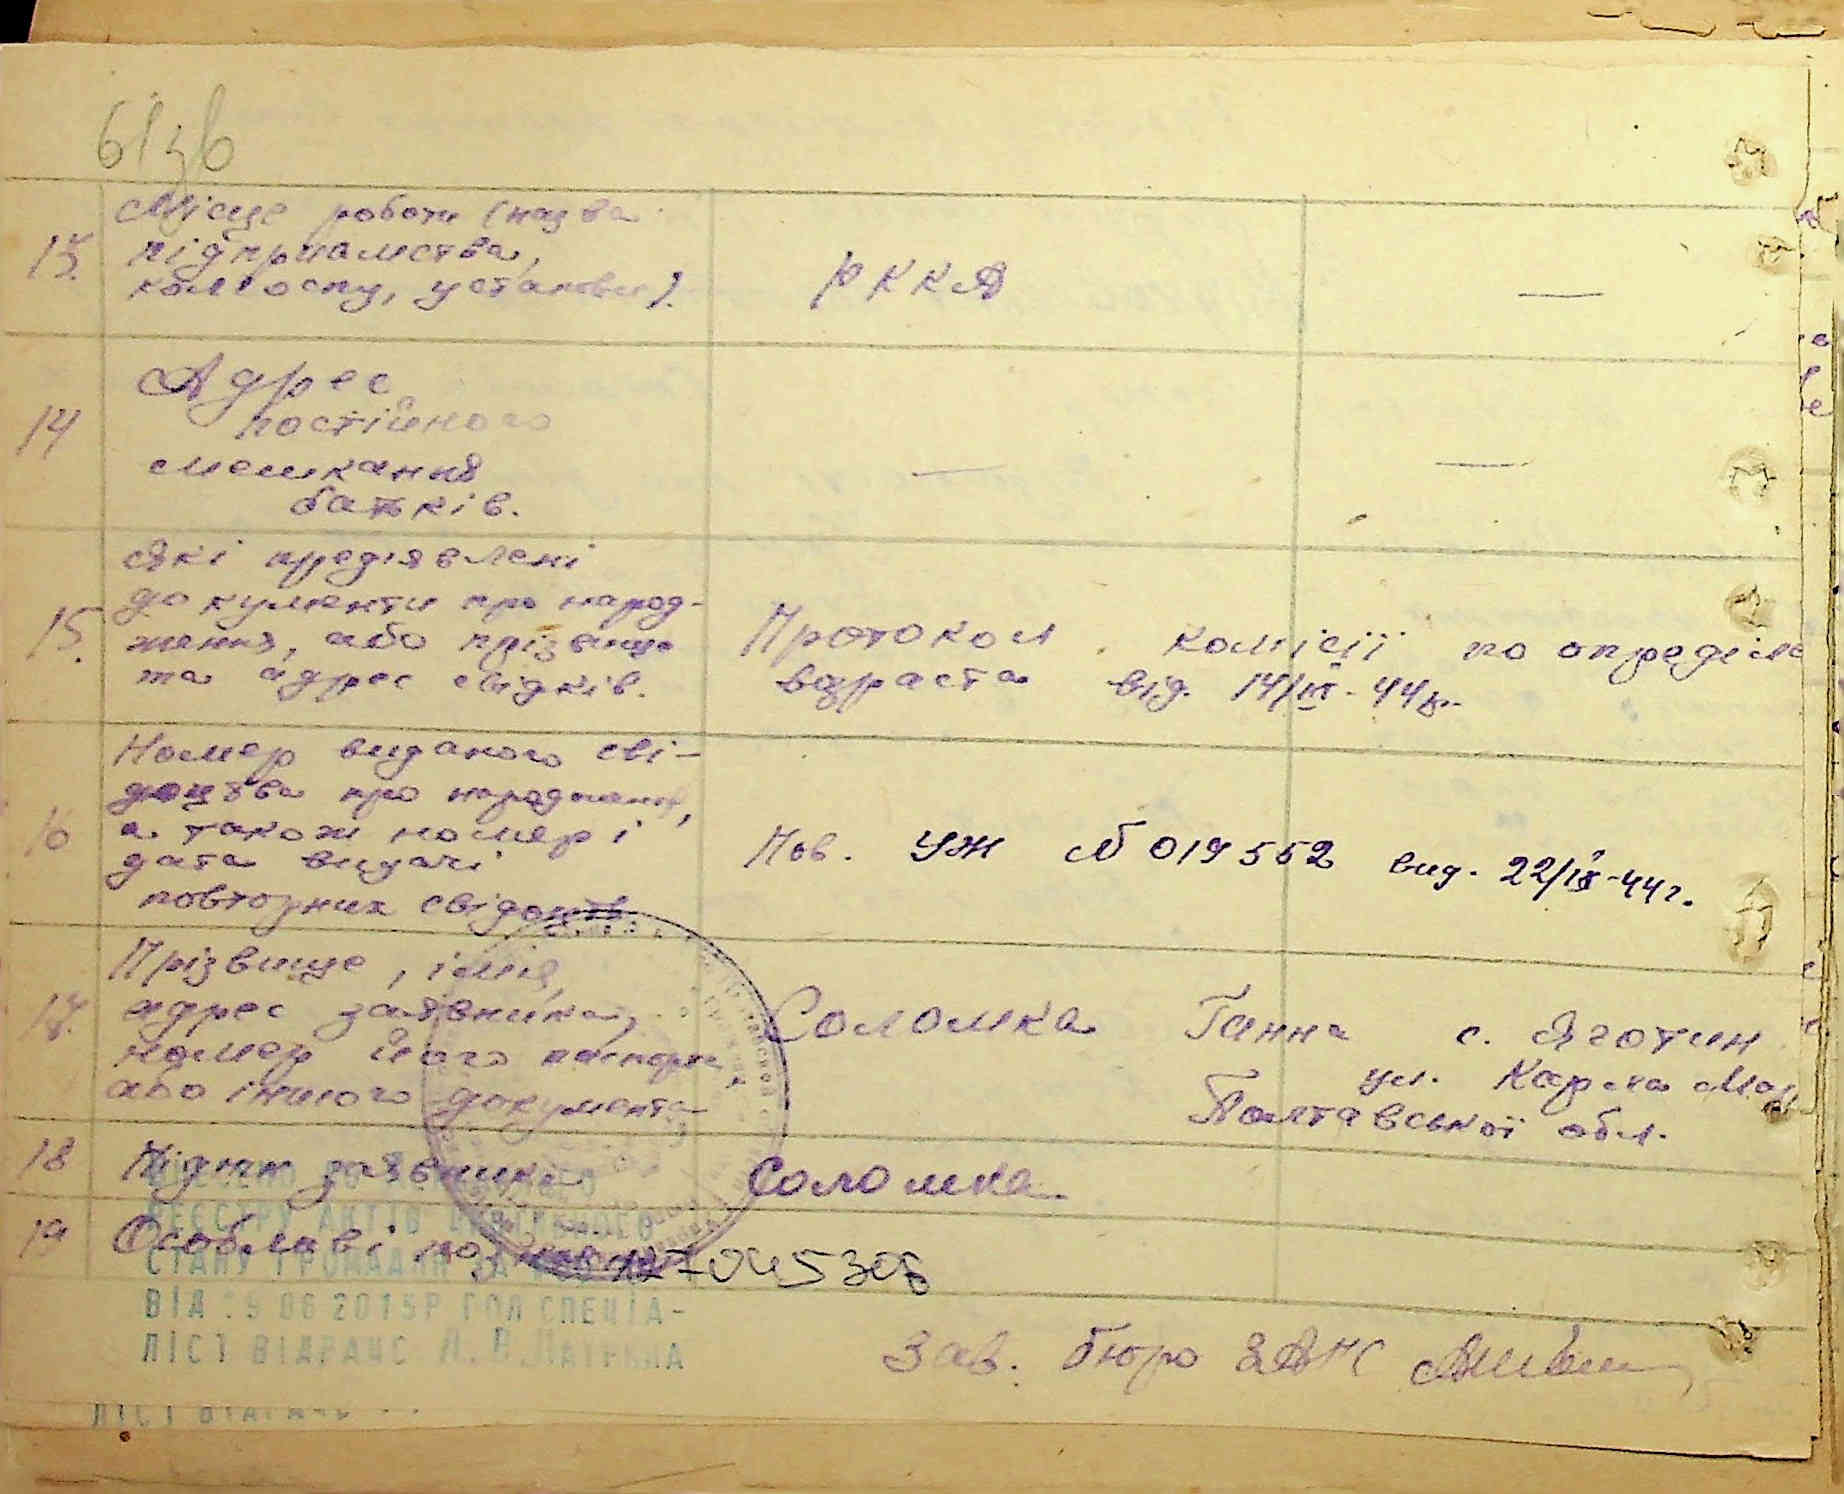 61 зв
13. Місце роботи (назва
підприємства,
колгоспу, установи).
РККА —
14 Адрес
постійного
мешкання
батків.
— —
15. Які предіявлені
документи про народ-
ження, або прізвище
та адрес свідків.
Протокол комісії по опреділ
возраста від. 14/IX-44р.
16 Номер виданого сві-
доцтва про народження,
а також номер і
дата видачі
повторних свідоцтв.
Пов. УЖ № 019552 вид. 22/IX-44г.
17. Прізвище, імія,
адрес заявника,
номер його паспорта
або іншого документа
Соломка Ганна с. Яготин
ул. Карла Мар
Полтавської обл.
18 Підпис заявника Соломка.
19 Особливі
РЕЄСТРУ АКТІВ ЦИВІЛЬНОГО
СТАНУ ГРОМАДЯН ЗА
ВІД 19 06 2015Р ГОЛ СПЕЦІА-
ЛІСТ ВІДРАЦС
Зав. бюро ЗАГС
ЛІСТ ВІДРАЦС